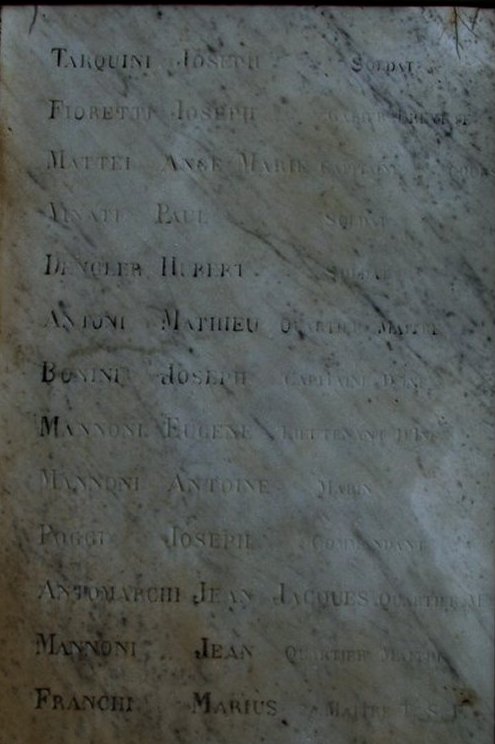 TARQUINI JOSEPH SOLDAT
FIORETTI JOSEPH GABIER BREVETÉ
MATTEI ANGE MARIE CAPITAINE
VINATI PAUL SOLDAT
DENGLER HUBERT SOLDAT
ANTONI MATHIEU QUARTIER MAITRE
BONINI JOSEPH CAPITAINE D'INF
MANNONI EUGENE LIEUTENANT D'INF
MANNONI ANTOINE MARIN
POGGI JOSEPH COMMANDANT
ANTOMARCHI JEAN JACQUES QUARTIER M
MANNONI JEAN QUARTIER MAITRE
FRANCHI MARIUS MAITRE